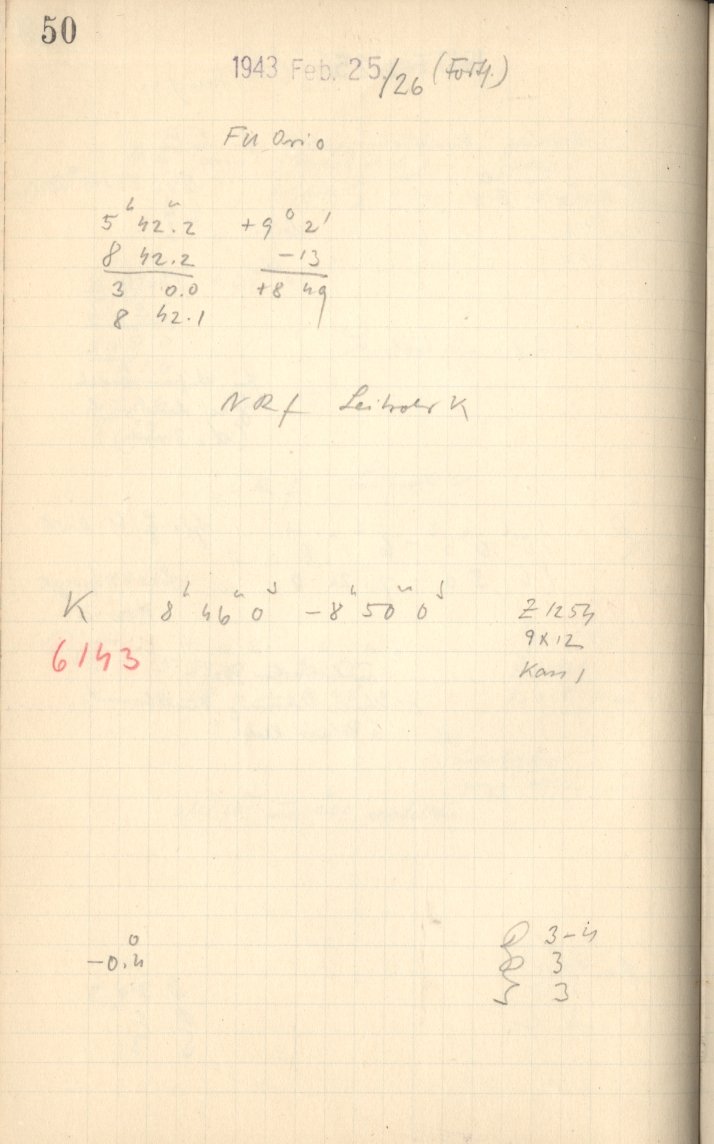 50
1943 Feb. 25./26 (Forts.)
FU Orio
5ʰ 42.ᵐ2 +9° 2'
8 42.2 -13
3 0.0 +8 49
8 42.1
NRf Leitrohr K
K 8ʰ 46ᵐ 0ˢ -8ʰ 50ᵐ 0ˢ Z 1254
6143 9x12
Kass 1
-0.°4
3-4
3
3